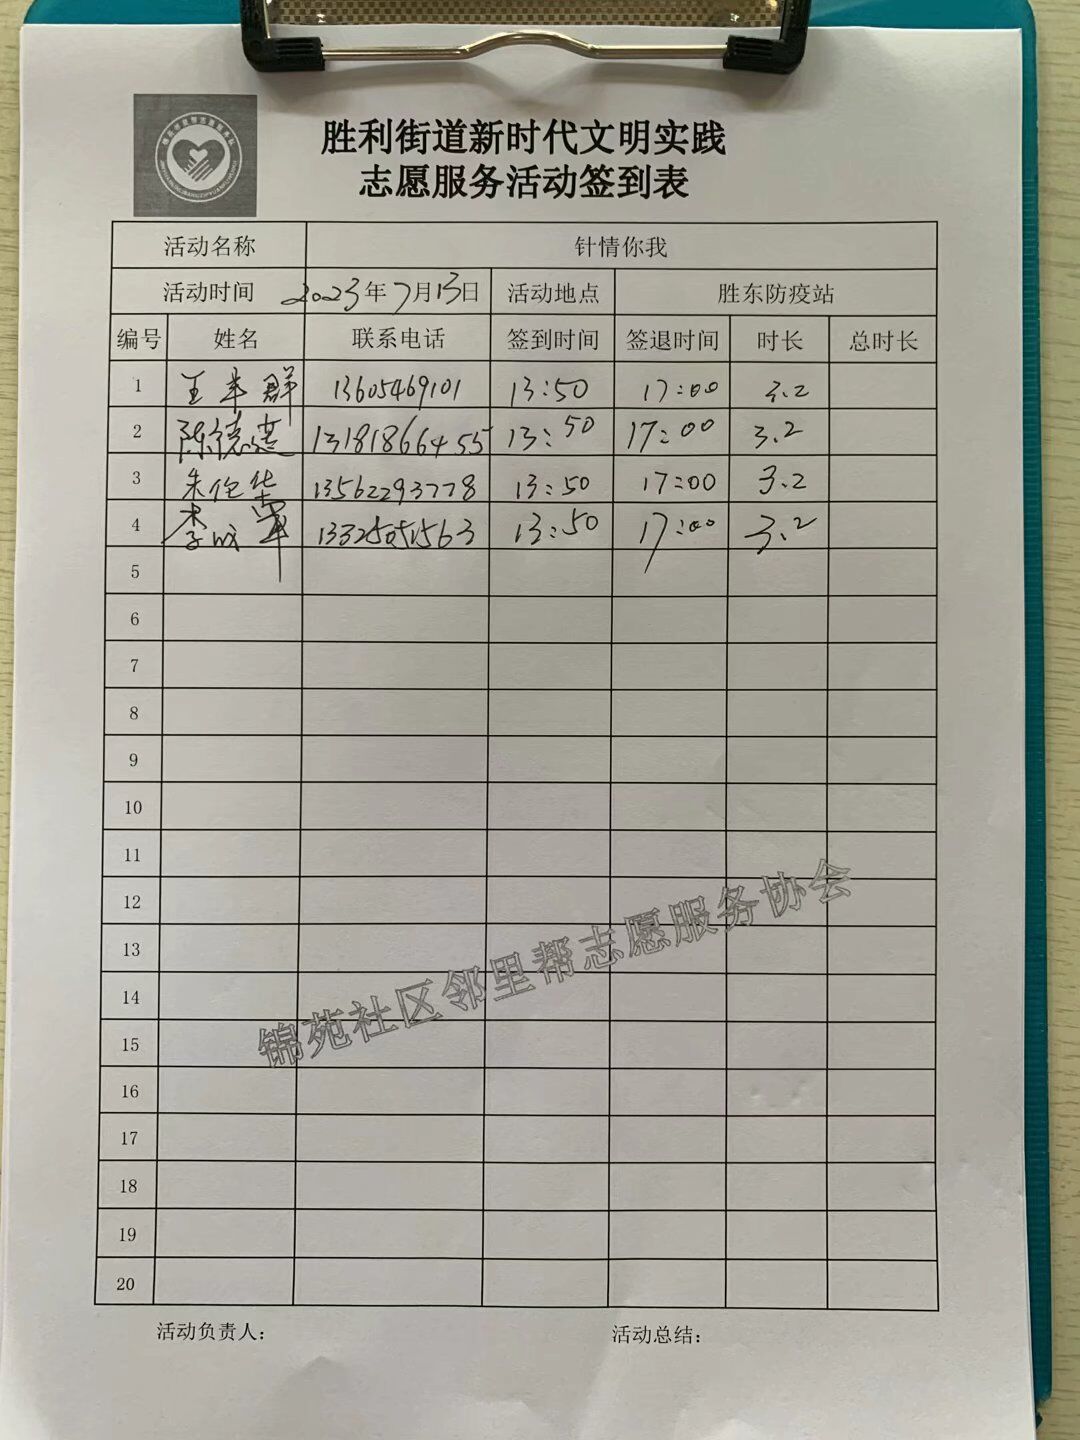 胜利街道新时代文明实践
志愿服务活动签到表
活动名称 针情你我
活动时间 2023年7月13日 活动地点 胜东防疫站
编号 姓名 联系电话 签到时间 签退时间 时长 总时长
1 王 群 13605469101 13:50 17:00 3.2
2 陈德 13181866455 13:50 17:00 3.2
3 朱 华 13562293778 13:50 17:00 3.2
4 李成军 13:50 17:00 3.2
5
6
7
8
9
10
11
12
13
14
15
16
17
18
19
20
锦苑社区邻里帮志愿服务协会
活动负责人: 活动总结: